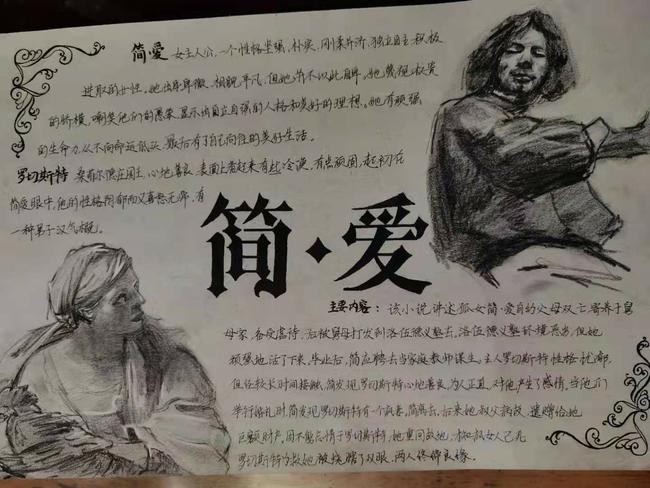 简爱 女主人公,一个性格坚强,朴实,刚柔并济,独立自主,积极
进取的女性。她出身卑微,相貌平凡,但她并不以此自卑。她蔑视权贵
的骄横,嘲笑他们的愚笨,显示出自立自强的人格和美好的理想。她有顽强
的生命力,从不向命运低头,最后有了自己向往的美好生活。
罗切斯特 桑菲尔德庄园主,心地善良,表面上看起来有些冷漠,有些顽固,起初在
简爱眼中,他的性格阴郁而又喜怒无常,有
一种男子汉气概。
简·爱
主要内容:该小说讲述孤女简·爱自幼父母双亡寄养于舅
母家,备受虐待,后被舅母打发到洛伍德义塾去,洛伍德义塾环境恶劣,但她
顽强地活了下来,毕业后,简应聘去当家庭教师谋生。主人罗切斯特性格忧郁,
但经较长时间接触,简发现罗切斯特心地善良,为人正直,对他产生了感情,当他们
举行婚礼时,简发现罗切斯特有一个疯妻,简离去,后来她叔父病故,遗赠给她
巨额财产,因不能忘情于罗切斯特,她重回故地,疯女人已死
罗切斯特为救她被烧瞎了双眼,两人终缔良缘